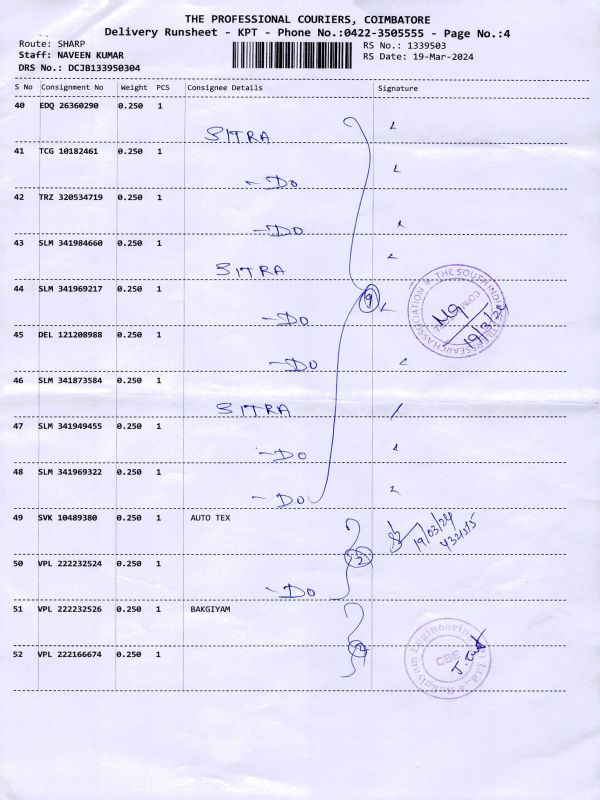 THE PROFESSIONAL COURIERS, COIMBATORE
Delivery Runsheet - KPT - Phone No.:0422-3505555 - Page No.:4
Route: SHARP
RS No.: 1339503
Staff: NAVEEN KUMAR
RS Date: 19-Mar-2024
DRS No.: DCJB133950304
S No Consignment No Weight PCS Consignee Details Signature
40 EDQ 26360290 0.250 1
SITRA
41 TCG 10182461 0.250 1
-Do
42 TRZ 320534719 0.250 1
-Do
43 SLM 341984660 0.250 1
SITRA
44 SLM 341969217 0.250 1
9
-Do
45 DEL 121208988 0.250 1
-Do
46 SLM 341873584 0.250 1
SITRA
47 SLM 341949455 0.250 1
-Do
48 SLM 341969322 0.250 1
-Do
THE SOUTH INDIA
RESEARCH ASSOCIATION
19/3/24
49 SVK 10489380 0.250 1 AUTO TEX
19/03/24
50 VPL 222232524 0.250 1
2
-Do
51 VPL 222232526 0.250 1 BAKGIYAM
52 VPL 222166674 0.250 1
Bakgiyam Engineering Pvt Ltd.,
CBE